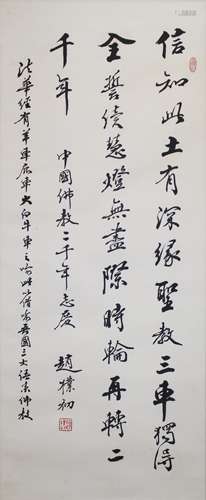 信知此土有深緣聖教三車獨得
全誓續慧燈無盡際時輪再轉二
千年 中國佛教二千年志慶 趙樸初
法華經有羊車鹿車大白牛車之喻此借吾國三大語系佛教